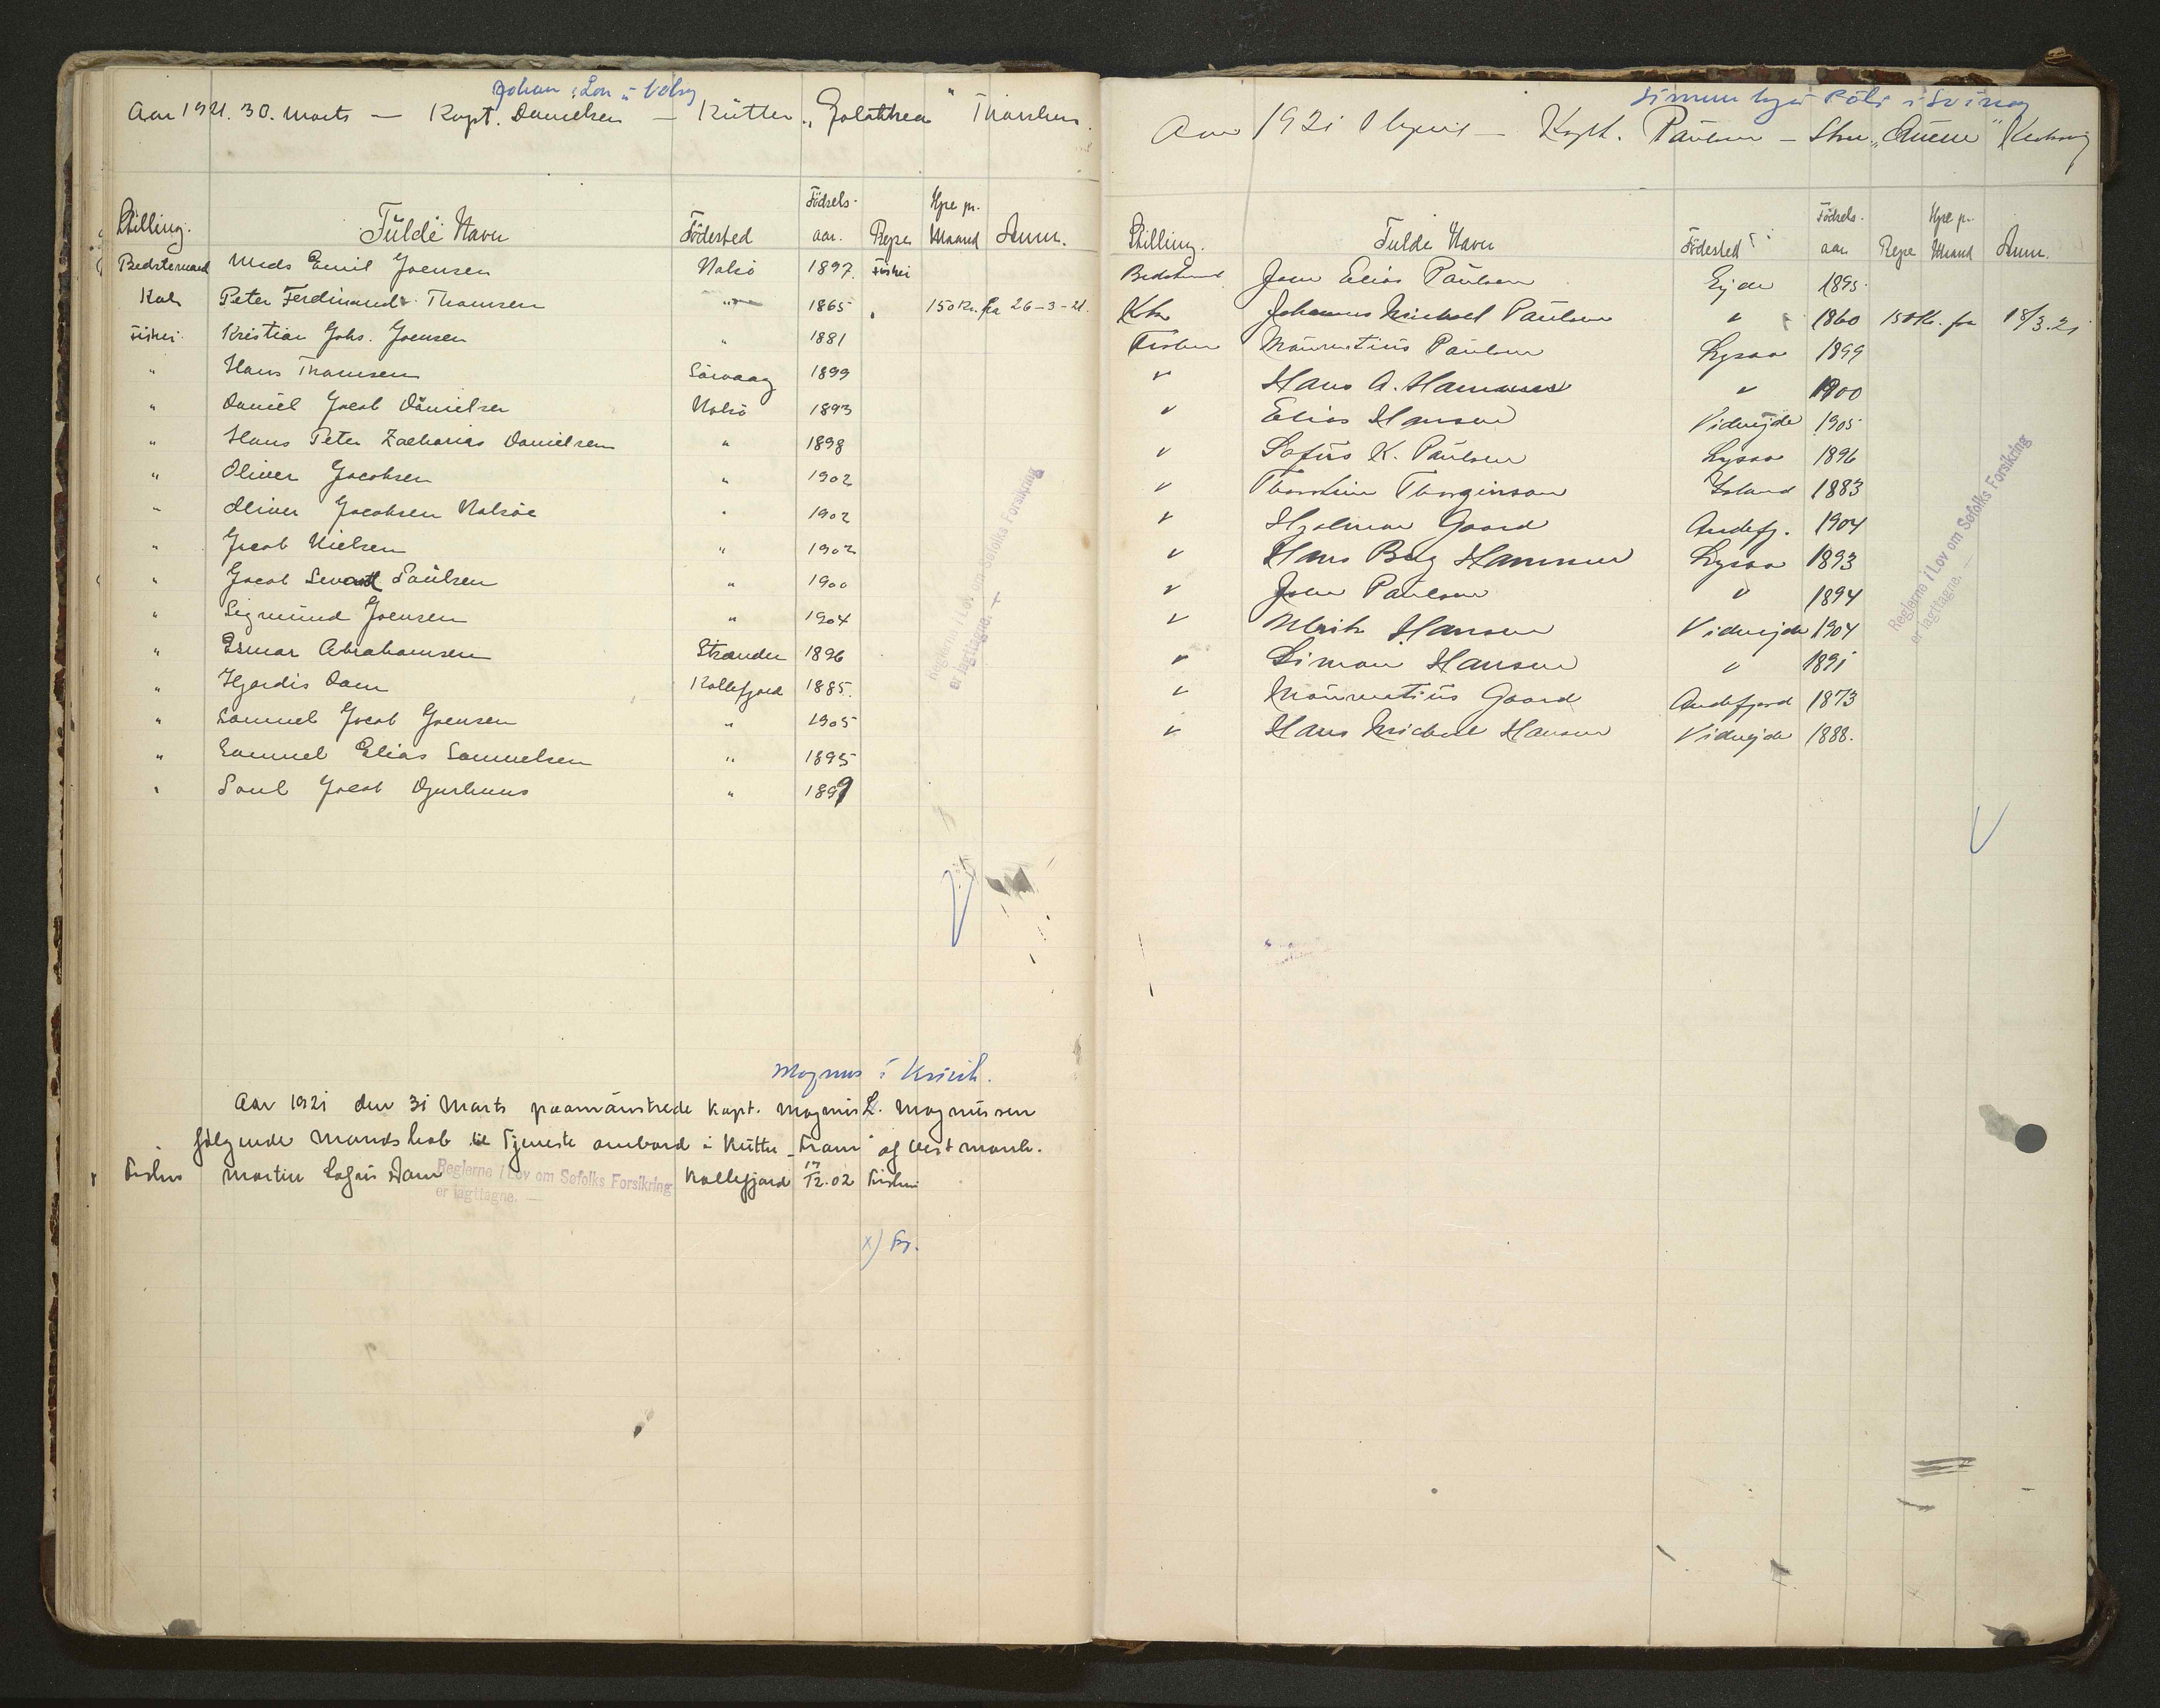 Johan
Aar 1921. 30. Marts — Kapt. Danielsen — Kütter „Galathea" Thorshavn.
Stilling. Fülde Navn Födested Födsels-aar. Rejse Hyre pr. Maaned Anm.
Bedstemand Mads Emil Joensen Nolsö 1897. Fiskeri
Kok Peter Ferdinand Thomsen " 1865 " 150 Kr. fra 26-3-21.
Fisker Kristian Johs. Joensen " 1881
" Hans Thomsen Sörvaag 1899
" Daniel Jacob Danielsen Nolsö 1893
" Hans Peter Zacharias Danielsen " 1898
" Oliver Jacobsen " 1902
" Oliver Jacobsen Nolsöe " 1902
" Jacob Nielsen " 1902
" Jacob Poülsen " 1900
" Sigmünd Joensen " 1904
" Esmar Abrahamsen Strænder 1896
" Hjardis Dam Kollefjord 1885.
" Samuel Jacob Joensen " 1905
" Samuel Elias Samuelsen " 1895
" Poul Jacob Djurhuus " 1899
Reglerne i Lov om Søfolks Forsikring
er iagttagne. —
Magnus i
Aar 1921 den 31 Marts paamönstrede Kapt. Magnus L. Magnüssen
følgende Mandskab til Tjeneste ombord i Kutter „Fram" af Vestmanh.
Fisker Martin Sofus Dam Kollefjord 17/12.02 Fiskeri
Reglerne i Lov om Søfolks Forsikring
er iagttagne. —
x)
Aar 1921 1 April — Kapt. Paulsen —
Stilling. Fulde Navn Födested Födsels-aar Rejse Hyre pr. Maaned Anm.
Bedstemand Joen Elias Paülsen Ejde 1895.
Kok Johannes Michael Paülsen " 1860 150 Kr. fra 18/3.21
Fisker Maüritiüs Paülsen 1899
" Hans A. Hammer " 1900
" Elias Hansen Videjde 1905
" Sofüs K. Paülsen 1896
" Island 1883
" Hjalmar Gaard Andefj. 1904
" Hans Berg Hammer 1893
" Joen Paülsen " 1894
" Ulrik Hansen Videjde 1904
" Simon Hansen " 1891
" Maüritiüs Gaard Andefjord 1873
" Hans Michael Hansen Videjde 1888.
Reglerne i Lov om Søfolks Forsikring
er iagttagne. —